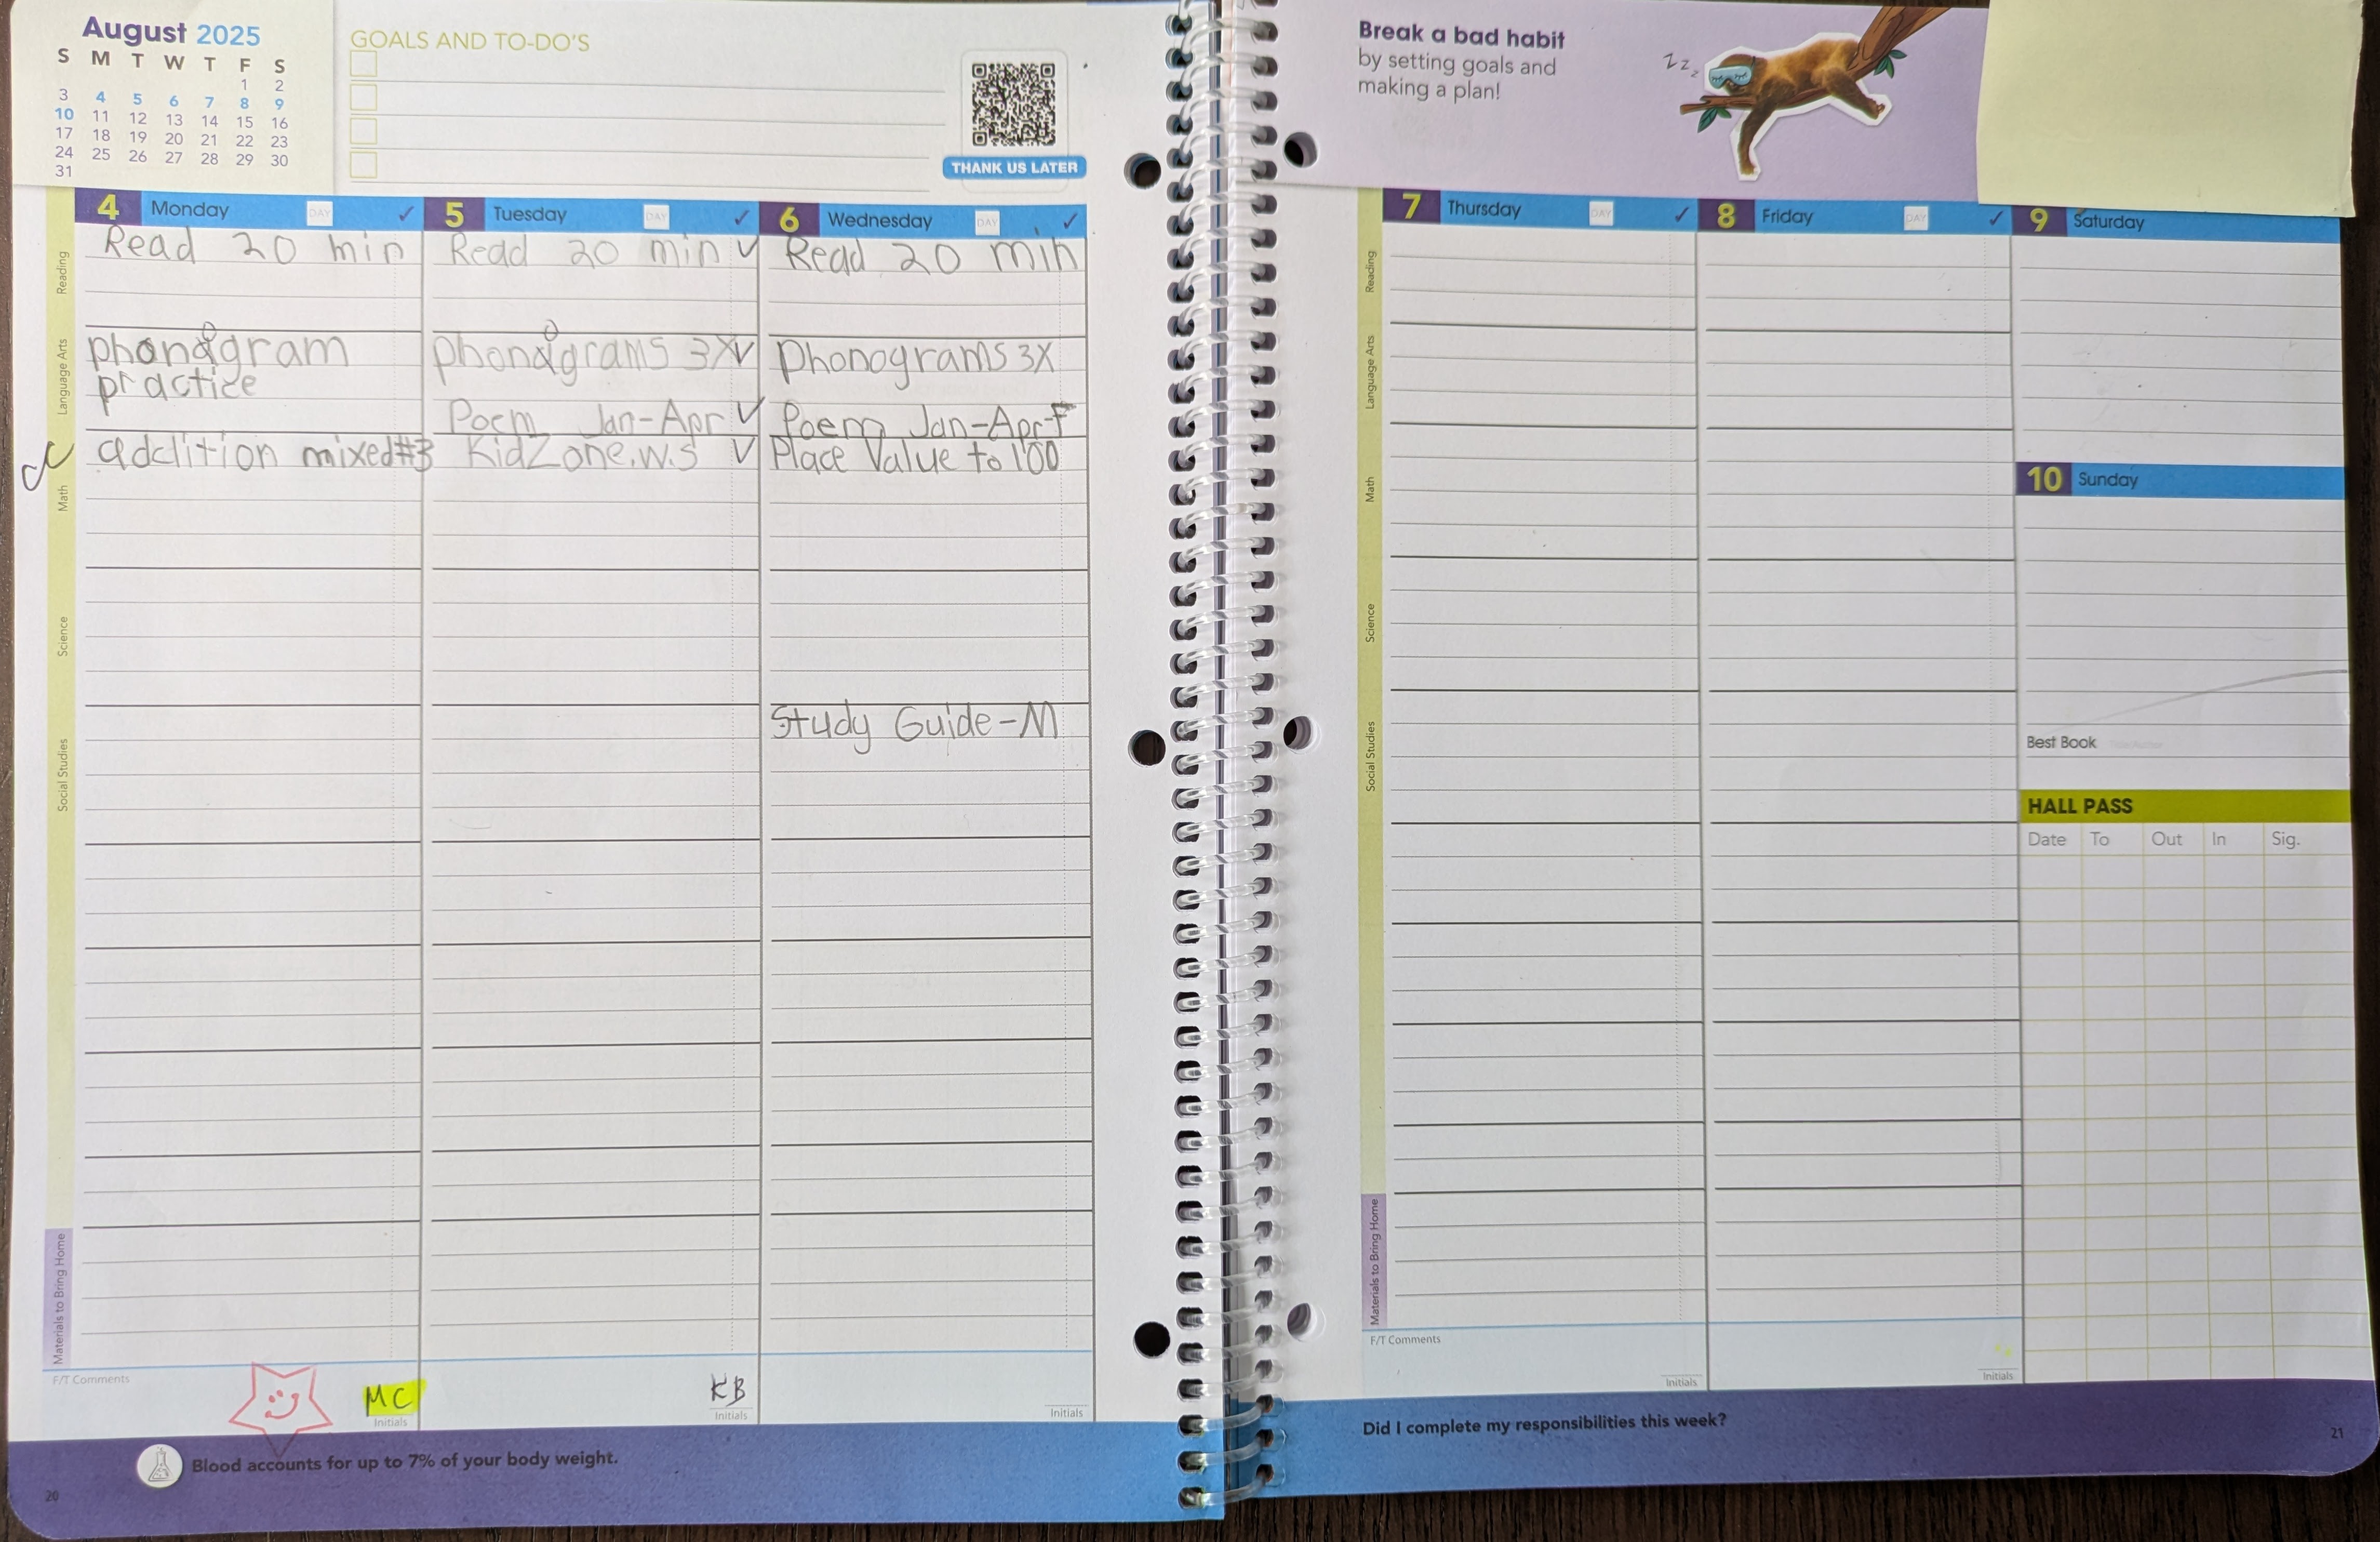 August 2025
S M T W T F S
1 2
3 4 5 6 7 8 9
10 11 12 13 14 15 16
17 18 19 20 21 22 23
24 25 26 27 28 29 30
31
GOALS AND TO-DO'S
THANK US LATER
4 Monday DAY ✓
Reading
Read 20 min
Language Arts
phonogram
practice
Math
addition mixed#3
Science
Social Studies
Materials to Bring Home
F/T Comments
MC
Initials
5 Tuesday DAY ✓
Read 20 min ✓
phonograms 3X ✓
Poem Jan-Apr ✓
KidZone.W.S ✓
KB
Initials
6 Wednesday DAY ✓
Read 20 min
Phonograms 3X
Poem Jan-Apr-F
Place Value to 100
Study Guide-M
Initials
Blood accounts for up to 7% of your body weight.
20
Break a bad habit
by setting goals and
making a plan!
Z Z Z
7 Thursday DAY ✓
Reading
Language Arts
Math
Science
Social Studies
Materials to Bring Home
F/T Comments
Initials
8 Friday DAY ✓
Initials
9 Saturday
10 Sunday
Best Book
HALL PASS
Date To Out In Sig.
Did I complete my responsibilities this week?
21